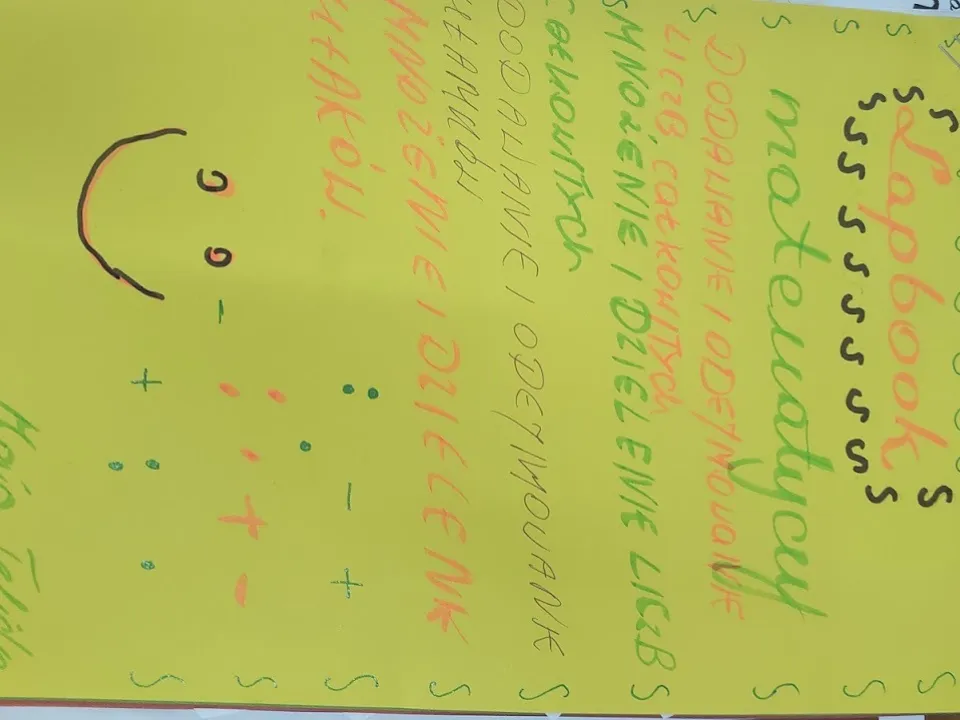 Lapbook
matematyczny
DODAWANIE I ODEJMOWANIE
LICZB CAŁKOWITYCH
MNOŻENIE I DZIELENIE LICZB
CAŁKOWITYCH
DODAWANIE I ODEJMOWANIE
UŁAMKÓW
MNOŻENIE I DZIELENIE
UŁAMKÓW.
: - +
: · + -
- + : ·